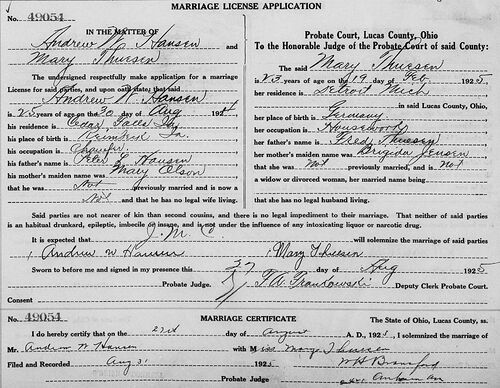 MARRIAGE LICENSE APPLICATION
No. 49054
IN THE MATTER OF
Andrew W. Hansen and
Mary Thuesen
The undersigned respectfully make application for a Marriage
License for said parties, and upon oath, state, that said
Andrew W. Hansen
is 25 years of age on the 30 day of Aug 192
his residence is Cedar Falls Ia
his place of birth is Ia.
his occupation is Chaufer
his father's name is Peter L Hansen
his mother's maiden name was Mary Olson
that he was Not previously married and is now a
Not and that he has no legal wife living.
Probate Court, Lucas County, Ohio
To the Honorable Judge of the Probate Court of said County:
The said Mary Thuesen
is 23 years of age on the 19 day of Feb 1925
her residence is Detroit Mich
in said Lucas County, Ohio,
her place of birth is Germany
her occupation is Housework
her father's name is Fred Thuesen
her mother's maiden name was Jensen
that she was Not previously married, and is Not
a widow or divorced woman, her married name being
that she has no legal husband living.
Said parties are not nearer of kin than second cousins, and there is no legal impediment to their marriage. That neither of said parties
is an habitual drunkard, epileptic, imbecile or insane, and is not under the influence of any intoxicating liquor or narcotic drug.
It is expected that J. M. C. will solemnize the marriage of said parties
Andrew W Hansen Mary Thuesen
Sworn to before me and signed in my presence this day of Aug 1925
Probate Judge. Deputy Clerk Probate Court.
Consent
No. 49054 MARRIAGE CERTIFICATE The State of Ohio, Lucas County, ss.
I do hereby certify that on the day of August A. D., 192 , I solemnized the marriage of
Mr. Andrew W Hansen with Miss Mary Thuesen
Filed and Recorded Aug 31 1925
Probate Judge